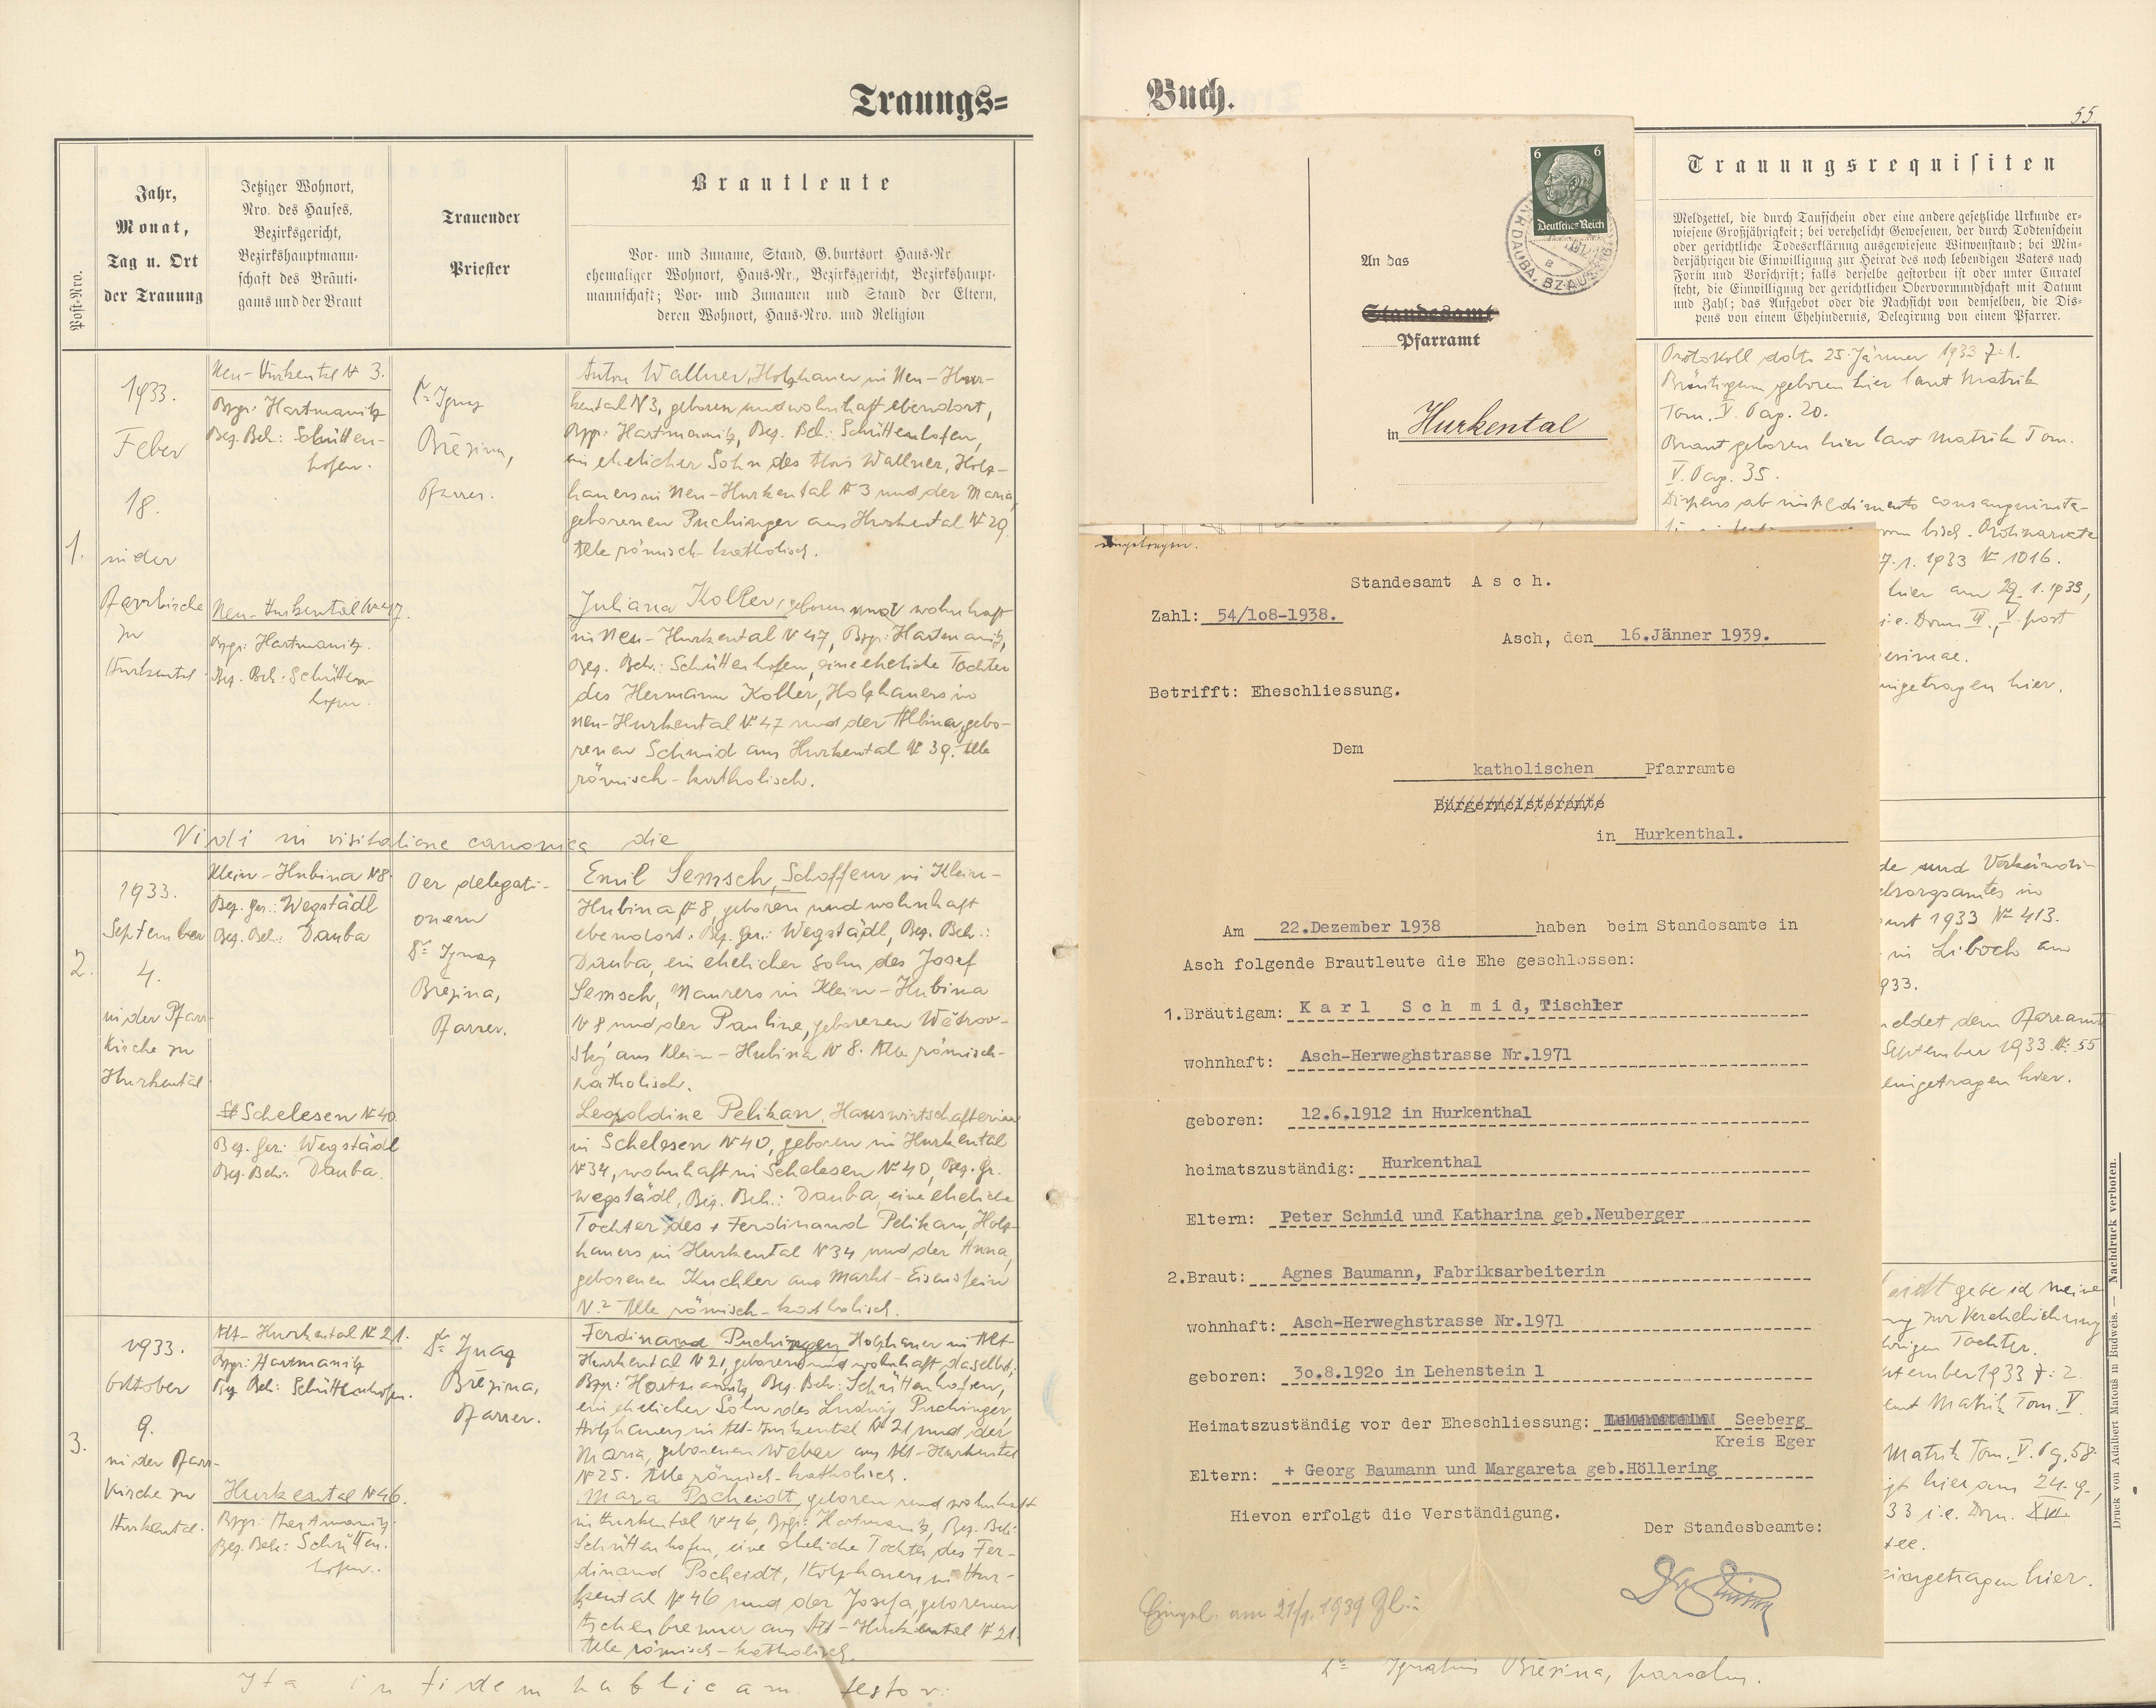 Trauungs=
Post-Nro.
Jahr,
Monat,
Tag u. Ort
der Trauung
Jetziger Wohnort,
Nro. des Hauses,
Bezirksgericht,
Bezirkshauptmann-
schaft des Bräuti-
gams und der Braut
Trauender
Priester
Brautleute
Vor- und Zuname, Stand, G.burtsort, Haus-Nr
ehemaliger Wohnort, Haus-Nr., Bezirksgericht, Bezirkshaupt-
mannschaft; Vor- und Zunamen und Stand der Eltern,
deren Wohnort, Haus-Nro. und Religion
1.
1933.
Feber
18.
in der
Pfarrkirche
zu
Hurkental.
Neu-Hurkental № 3.
Bzgr: Hartmanitz
Bez. Beh.: Schütten-
hofen.
Neu-Hurkental № 47.
Bzgr: Hartmanitz.
Bez. Beh.: Schütten-
hofen.
Dr Ignaz
Březina,
Pfarrer.
Anton Wallner, Holzhauer in Neu-Hur-
kental № 3, geboren und wohnhaft ebendort,
Bzgr: Hartmanitz, Bez. Beh.: Schüttenhofen,
ein ehelicher Sohn des Alois Wallner, Holz-
hauers in Neu-Hurkental № 3 und der Maria,
geborenen Puchinger aus Hurkental № 29.
Alle römisch-katholisch.
Juliana Koller, geboren und wohnhaft
in Neu-Hurkental № 47, Bzgr: Hartmanitz,
Bez. Beh.: Schüttenhofen, eine eheliche Tochter
des Hermann Koller, Holzhauers in
Neu-Hurkental № 47 und der Albina, gebo-
renen Schmid aus Hurkental № 39. Alle
römisch-katholisch.
Vidi in visitatione canonica die
2.
1933.
September
4.
in der Pfarr-
kirche zu
Hurkental.
Klein-Hubina № 8.
Bez. Ger.: Wegstädl
Bez. Beh.: Dauba
Schelesen № 40.
Bez. Ger: Wegstädl
Bez. Beh.: Dauba.
Per delegati-
onem
Dr Ignaz
Březina,
Pfarrer.
Emil Semsch, Schoffeur in Klein-
Hubina № 8, geboren und wohnhaft
ebendort. Bez. Ger.: Wegstädl, Bez. Beh.:
Dauba, ein ehelicher Sohn des Josef
Semsch, Maurers in Klein-Hubina
№ 8 und der Pauline, geborenen Wětrov-
ský aus Klein-Hubina № 8. Alle römisch-
katholisch.
Leopoldine Pelikan, Hauswirtschafterin
in Schelesen № 40, geboren in Hurkental
№ 34, wohnhaft in Schelesen № 40, Bez. Gr.
Wegstädl, Bez. Beh.: Dauba, eine eheliche
Tochter des + Ferdinand Pelikan, Holz-
hauers in Hurkental № 34 und der Anna,
geborenen Kuchler aus Markt-Eisenstein
N.? Alle römisch-katholisch.
3.
1933.
Oktober
9.
in der Pfarr-
kirche zu
Hurkental.
Alt-Hurkental № 21.
Bzgr: Hartmanitz
Bez. Beh: Schüttenhofen.
Hurkental № 46.
Bzgr: Hartmanitz.
Bez. Beh: Schütten.
hofen.
Dr Ignaz
Březina,
Pfarrer.
Ferdinand Puchinger, Holzhauer in Alt-
Hurkental № 21, geboren und wohnhaft daselbst,
Bzgr: Hartmanitz, Bez. Beh: Schüttenhofen,
ein ehelicher Sohn des Ludwig Puchinger,
Holzhauers in Alt-Hurkental № 21 und der
Maria, geborenen Weber aus Alt-Hurkental
№ 25. Alle römisch-katholisch.
Maria Pscheidt, geboren und wohnhaft
in Hurkental № 46, Bzgr: Hartmanitz, Bez. Beh:
Schüttenhofen, eine eheliche Tochter des Fer-
dinand Pscheidt, Holzhauers in Hur-
kental № 46 und der Josefa, geborenen
Aschenbrenner aus Alt-Hurkental № 21.
Alle römisch-katholisch.
Ita in fidem publicam testor:
Buch.
55
6 6
Deutsches Reich
An das
Standesamt
Pfarramt
in Hurkental
Trauungsrequisiten
Meldzettel, die durch Taufschein oder eine andere gesetzliche Urkunde er-
wiesene Großjährigkeit; bei verehelicht Gewesenen, der durch Todtenschein
oder gerichtliche Todeserklärung ausgewiesene Witwenstand; bei Min-
derjährigen die Einwilligung zur Heirat des noch lebendigen Vaters nach
Form und Vorschrift; falls derselbe gestorben ist oder unter Curatel
steht, die Einwilligung der gerichtlichen Obervormundschaft mit Datum
und Zahl; das Aufgebot oder die Nachsicht von demselben, die Dis-
pens von einem Ehehindernis, Delegirung von einem Pfarrer.
Protokoll ddto 25. Jänner 1933 Z: 1.
Bräutigam geboren hier laut Matrik
Tom. V. Pag. 20.
Braut geboren hier laut Matrik Tom.
V. Pag. 35.
Dispens ab impedimento consanguinita-
vom bisch. Ordinariate
7. 1. 1933 № 1016.
hier am 29. 1. 1933,
i. e. Dom. III., V. post
ingetragen hier.
de und Verkündi-
elsorgsamtes in
1933 № 413.
in Liboch am
933.
eldet dem Pfarramte
September 1933 №: 55
eingetragen hier.
gebe ich meine
zur Verehelichung
Tochter.
tember 1933 Z: 2.
Matrik Tom. V.
Matrik Tom. V. Pg. 58.
hier am 24. 9.,
33 i. e. Dom. XVI.
eingetragen hier.
Druck von Adalbert Matouš in Budweis. — Nachdruck verboten.
ingetragen.
Standesamt Asch.
Zahl: 54/1o8-1938.
Asch, den 16.Jänner 1939.
Betrifft: Eheschliessung.
Dem
katholischen Pfarramte
Bürgermeisteramte
in Hurkenthal.
Am 22.Dezember 1938 haben beim Standesamte in
Asch folgende Brautleute die Ehe geschlossen:
1.Bräutigam: Karl Schmid, Tischler
wohnhaft: Asch-Herweghstrasse Nr.1971
geboren: 12.6.1912 in Hurkenthal
heimatszuständig: Hurkenthal
Eltern: Peter Schmid und Katharina geb.Neuberger
2.Braut: Agnes Baumann, Fabriksarbeiterin
wohnhaft: Asch-Herweghstrasse Nr.1971
geboren: 3o.8.192o in Lehenstein 1
Heimatszuständig vor der Eheschliessung: Lehenstein Seeberg
Kreis Eger
Eltern: + Georg Baumann und Margareta geb.Höllering
Hievon erfolgt die Verständigung.
Der Standesbeamte:
Eingel. am 21/1. 1939 Zl:
Dr Ignatius Březina, parochus.